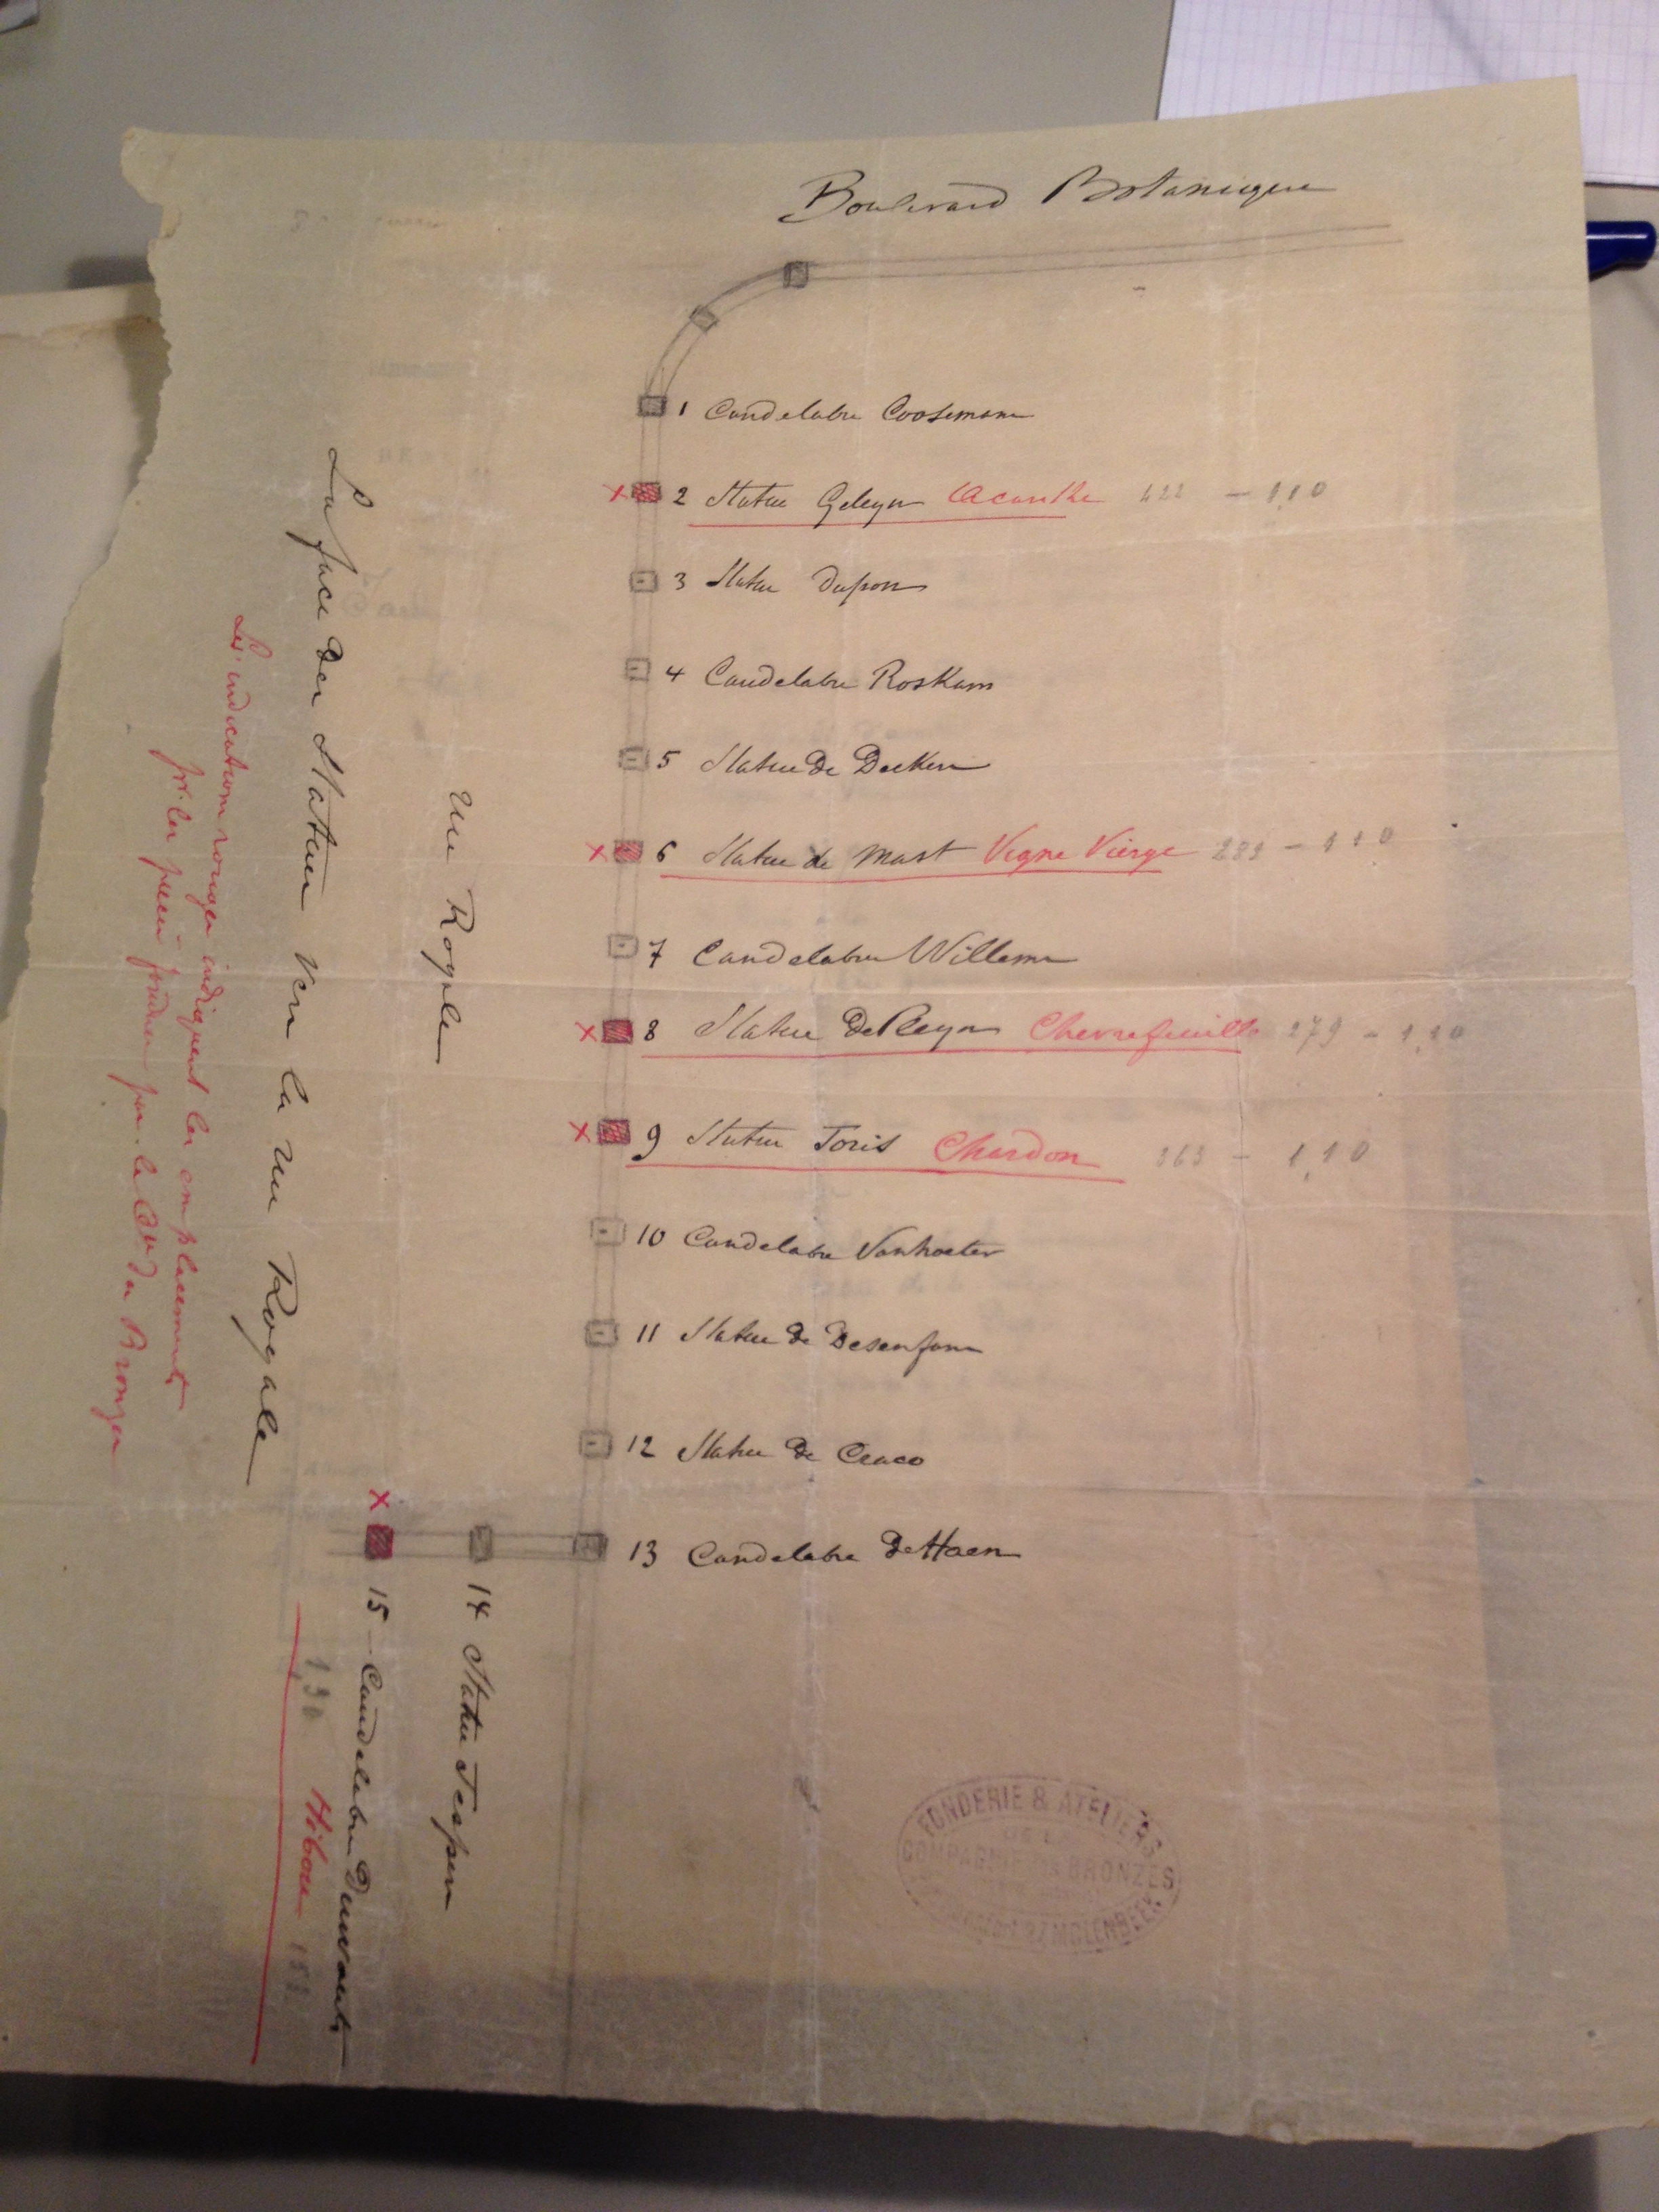 Boulevard Botanique
1 Candelabre Coosemans
2 Statue Geleyn Acanthe 422 - 1,10
3 Statue Dupon
4 Candelabre Roskam
5 Statue de Deckers
6 Statue de Mast Vigne Vierge 289 - 110
7 Candelabre Willems
8 Statue De Pleyn Chevrefeuille 279 - 1,10
9 Statue Joris Chardon 363 - 1,10
10 Candelabre Vanhoeter
11 Statue de Desenfans
12 Statue de Craco
13 Candelabre De Haen
14 Statue Jespers
15 - Candelabre Duwaerts
1,30 Hiboux
Rue Royale
La face des Statues vers la rue Royale
Les indications rouges indiquent les emplacements
pr. les pièces fondues par la Cie des Bronzes
FONDERIE & ATELIERS
DE LA
COMPAGNIE DES BRONZES
MOLENBEEK